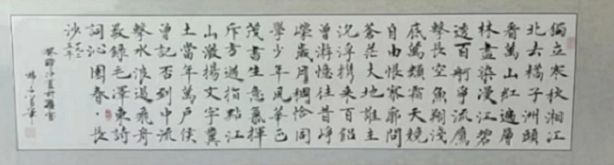 獨立寒秋湘江
北去橘子洲頭
看萬山紅遍層
林盡染漫江碧
透百舸爭流鷹
擊長空魚翔淺
底萬類霜天競
自由悵寥廓問
蒼茫大地誰主
沉浮携來百侣
曾游憶往昔崢
嶸歲月稠恰同
學少年風華正
茂書生意氣揮
斥方遒指點江
山激揚文字糞
土當年萬户侯
曾記否到中流
擊水浪遏飛舟
敬録毛澤東詩
詞沁園春·長
沙